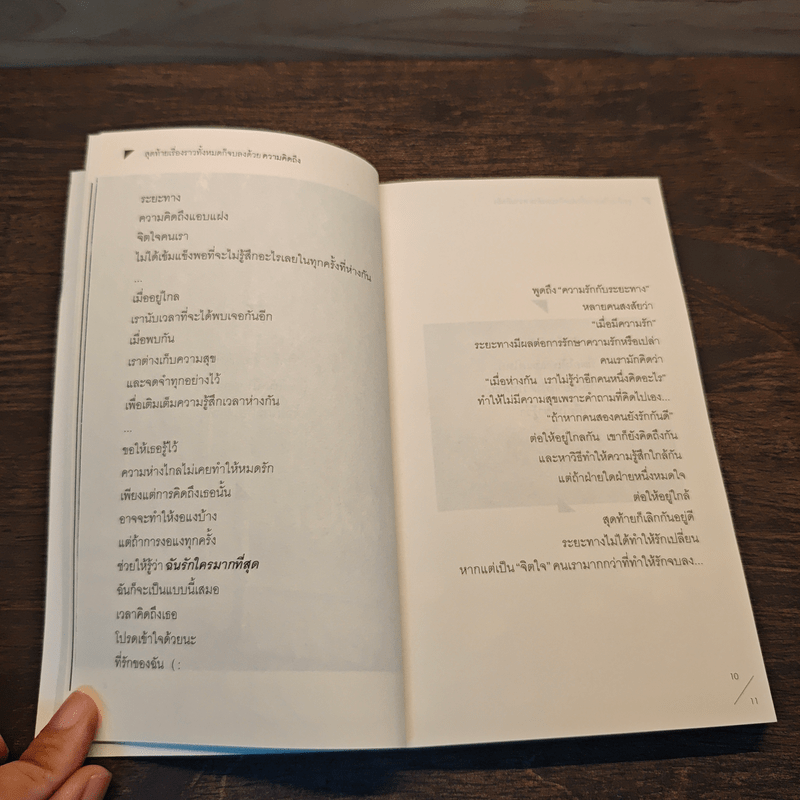 สุดท้ายเรื่องราวทั้งหมดก็จบลงด้วย ความคิดถึง
ระยะทาง
ความคิดถึงแอบแฝง
จิตใจคนเรา
ไม่ได้เข้มแข็งพอที่จะไม่รู้สึกอะไรเลยในทุกครั้งที่ห่างกัน
...
เมื่ออยู่ไกล
เรานับเวลาที่จะได้พบเจอกันอีก
เมื่อพบกัน
เราต่างเก็บความสุข
และจดจำทุกอย่างไว้
เพื่อเติมเต็มความรู้สึกเวลาห่างกัน
...
ขอให้เธอรู้ไว้
ความห่างไกลไม่เคยทำให้หมดรัก
เพียงแต่การคิดถึงเธอนั้น
อาจจะทำให้งอแงบ้าง
แต่ถ้าการงอแงทุกครั้ง
ช่วยให้รู้ว่า ฉันรักใครมากที่สุด
ฉันก็จะเป็นแบบนี้เสมอ
เวลาคิดถึงเธอ
โปรดเข้าใจด้วยนะ
ที่รักของฉัน (:
พูดถึง "ความรักกับระยะทาง"
หลายคนสงสัยว่า
"เมื่อมีความรัก"
ระยะทางมีผลต่อการรักษาความรักหรือเปล่า
คนเรามักคิดว่า
"เมื่อห่างกัน เราไม่รู้ว่าอีกคนหนึ่งคิดอะไร"
ทำให้ไม่มีความสุขเพราะคำถามที่คิดไปเอง...
"ถ้าหากคนสองคนยังรักกันดี"
ต่อให้อยู่ไกลกัน เขาก็ยังคิดถึงกัน
และหาวิธีทำให้ความรู้สึกใกล้กัน
แต่ถ้าฝ่ายใดฝ่ายหนึ่งหมดใจ
ต่อให้อยู่ใกล้
สุดท้ายก็เลิกกันอยู่ดี
ระยะทางไม่ได้ทำให้รักเปลี่ยน
หากแต่เป็น "จิตใจ" คนเรามากกว่าที่ทำให้รักจบลง...
10
11